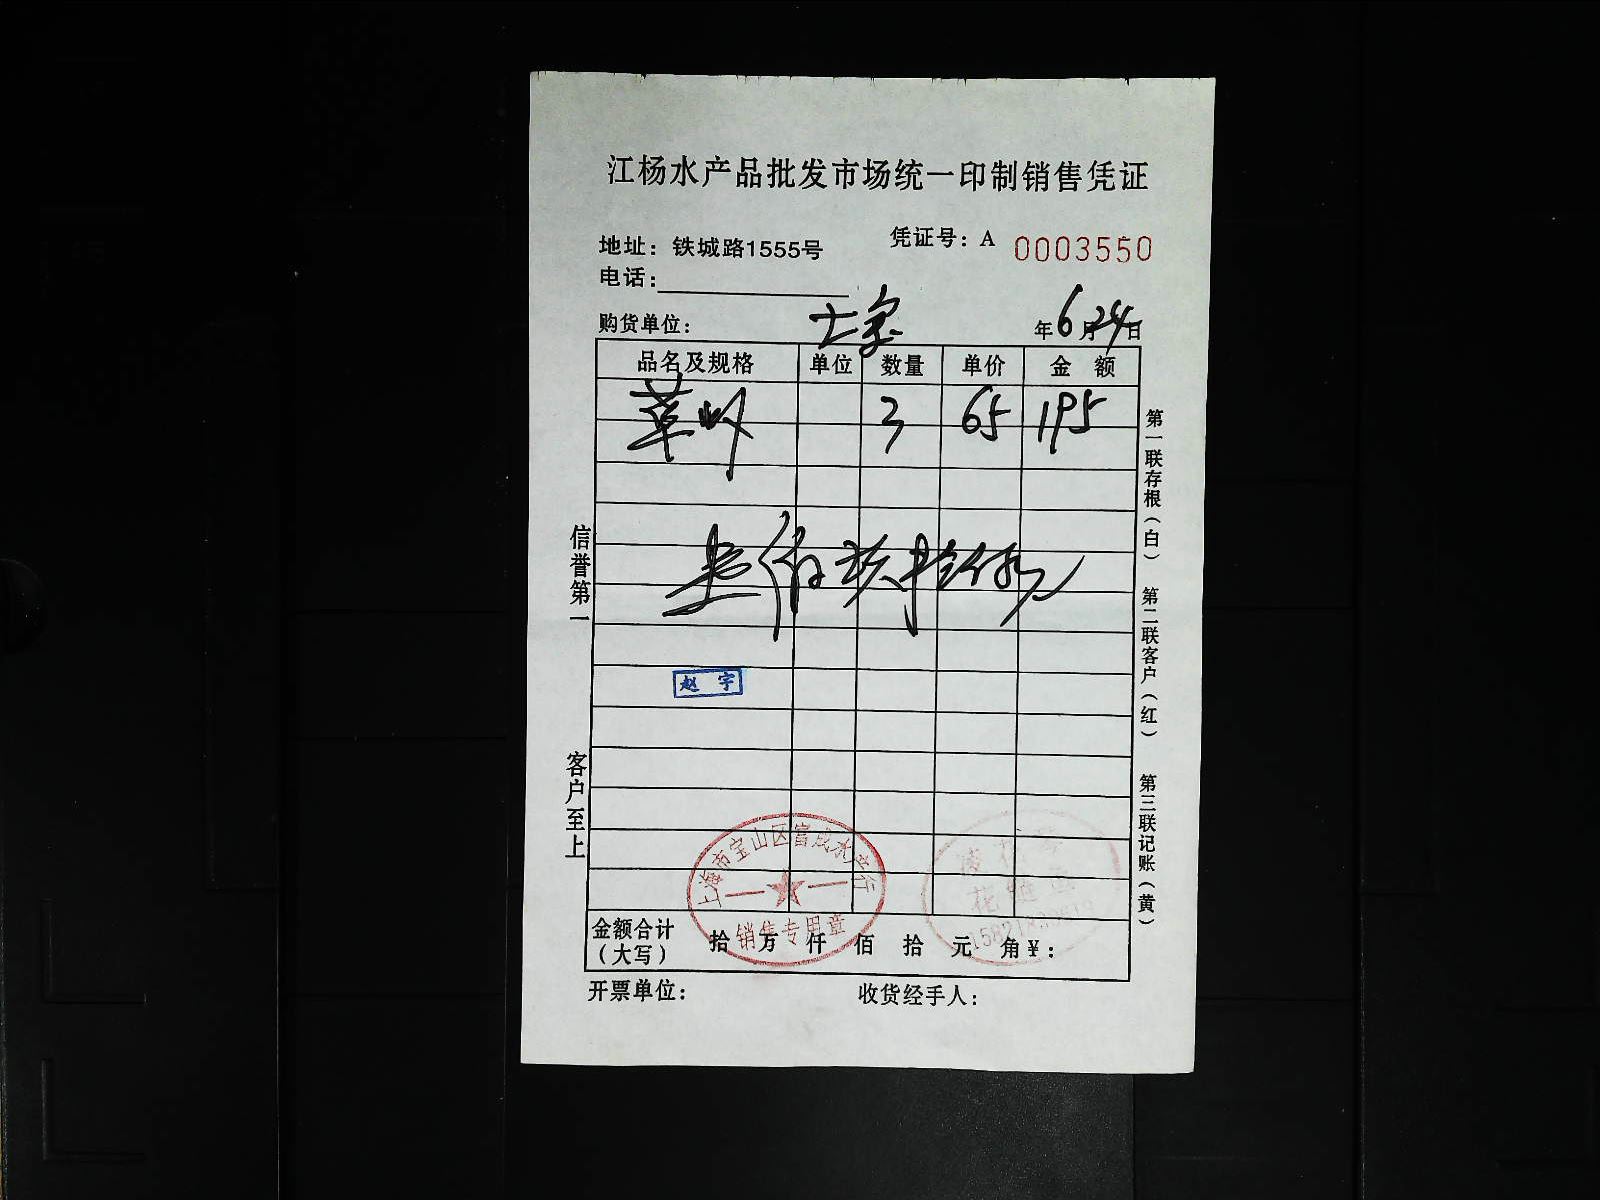 江杨水产品批发市场统一印制销售凭证
凭证号：A 0003550
地址：铁城路1555号
电话：
购货单位： 年6月24日
品名及规格 单位 数量 单价 金 额
草虾 3 65 195
壹佰玖拾伍元
赵 宇
信誉第一
客户至上
第一联存根（白） 第二联客户（红） 第三联记账（黄）
上海市宝山区富成水产行
销售专用章
花鲢鱼
金额合计（大写） 拾 万 仟 佰 拾 元 角 ¥：
开票单位： 收货经手人：